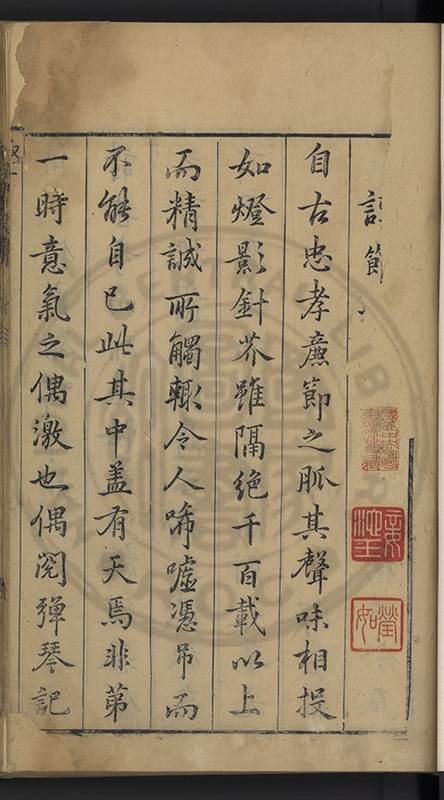 節
自古忠孝廉節之脈其聲味相投
如燈影針芥雖隔絕千百載以上
而精誠所觸輒令人唏噓憑弔而
不能自已此其中盖有天焉非第
一時意氣之偶激也偶閱彈琴記